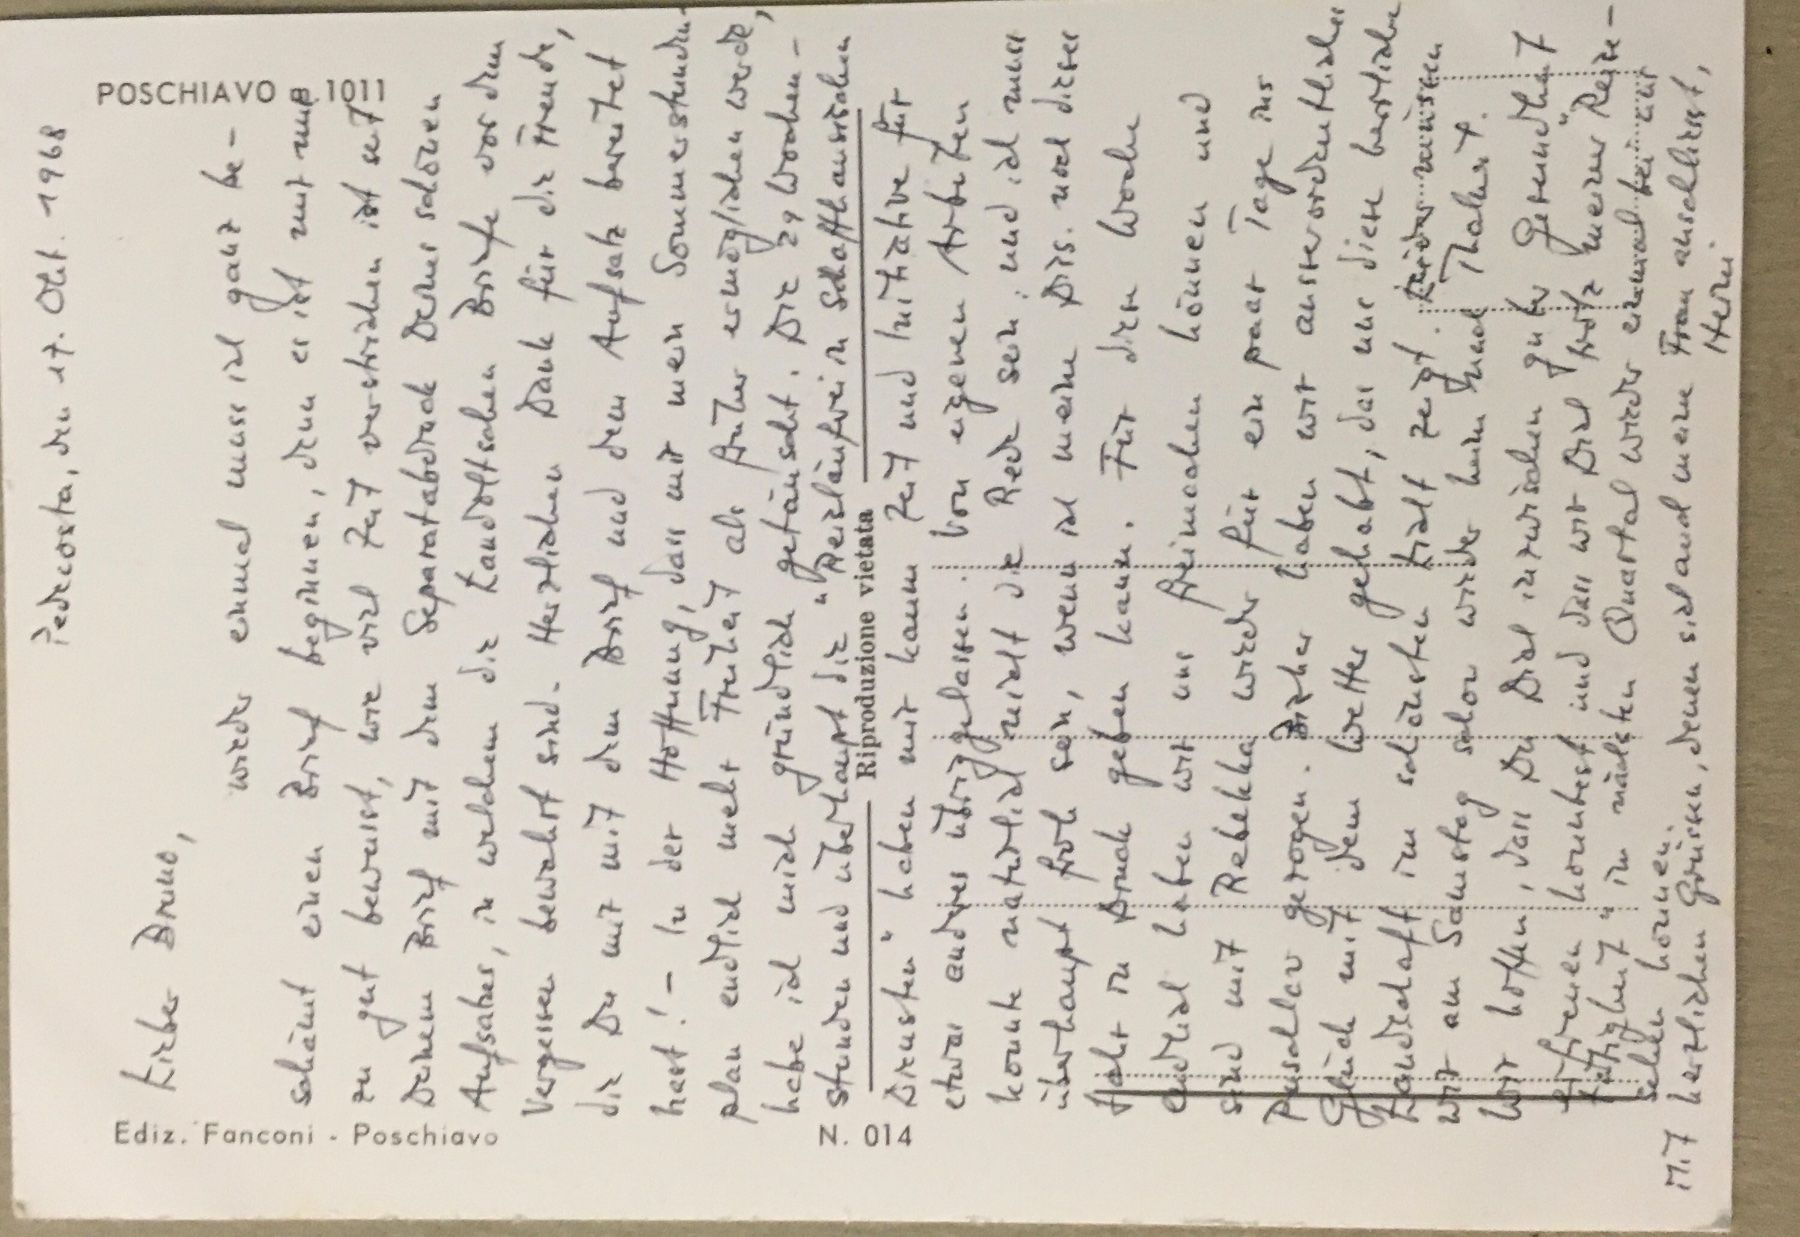 POSCHIAVO m. 1011
Ediz. Fanconi - Poschiavo
N. 014
Riproduzione vietata
Pedecosta, den 17. Okt. 1968
Lieber Bruno,
wieder einmal muss ich ganz be-
schämt einen Brief beginnen, denn es ist mir nur
zu gut bewusst, wie viel Zeit verstrichen ist seit
Deinem Brief mit dem Separatabdruck Deines schönen
Aufsatzes, in welchem die Landoltschen Briefe vor dem
Vergessen bewahrt sind. Herzlichen Dank für die Freude,
die Du mir mit dem Brief und dem Aufsatz bereitet
hast! – In der Hoffnung, dass mir mein Sommerstunden-
plan endlich mehr Freiheit als früher ermöglichen werde,
habe ich mich gründlich getäuscht. Die 29 Wochen-
stunden und überhaupt die "Reisläuferei in Schaffhausischen
Diensten" haben mir kaum Zeit und Initiative für
etwas anderes übriggelassen. Von eigenen Arbeiten
konnte natürlich nicht die Rede sein, und ich muss
überhaupt froh sein, wenn ich meine Diss. noch dieses
Jahr in Druck geben kann. Für diese Woche
endlich haben wir uns freimachen können und
sind mit Rebekka wieder für ein paar Tage ins
Puschlav gezogen. Bisher haben wir ausserordentliches
Glück mit dem Wetter gehabt, das uns diese herrliche
Landschaft im schönsten Licht zeigt. Leider müssen
wir am Samstag schon wieder heim nach Thalheim.
Wir hoffen, dass Du Dich inzwischen guter Gesundheit
erfreuen konntest und dass wir Dich trotz meiner "Reise-
tätigkeit" im nächsten Quartal wieder einmal bei uns
sehen können.
Mit herzlichen Grüssen, denen sich auch meine Frau anschliesst,
Heini